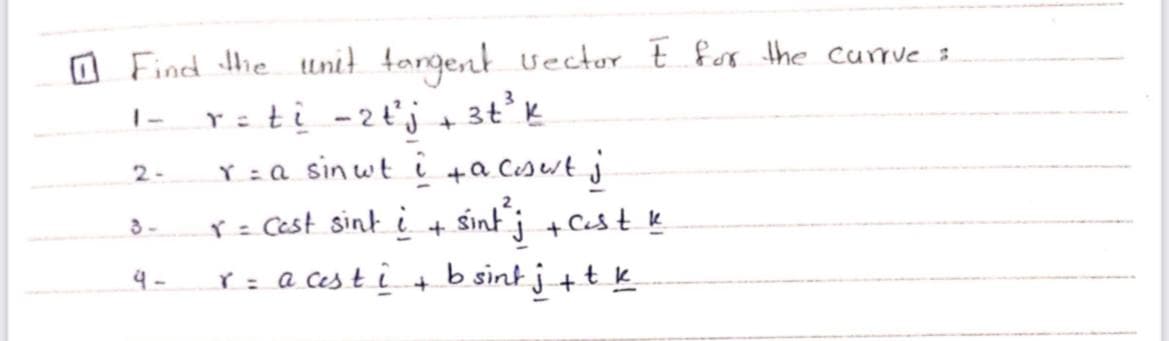 1 Find the unit tangent vector t̄ for the currve :
1- r = t i - 2t² j + 3t³ k
2- r = a sin wt i + a cos wt j
3- r = cost sint i + sint² j + cos t k
4- r = a cos t i + b sint j + t k